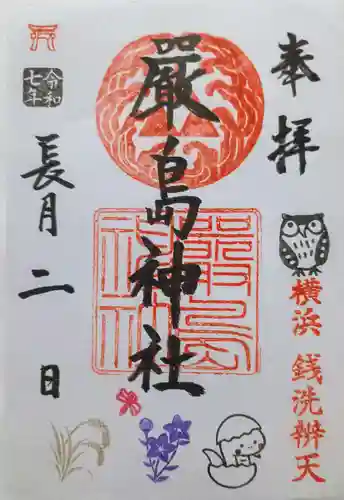 奉拝
横浜 銭洗辨天
嚴島神社
嚴島神社
令和
七年
長月二日